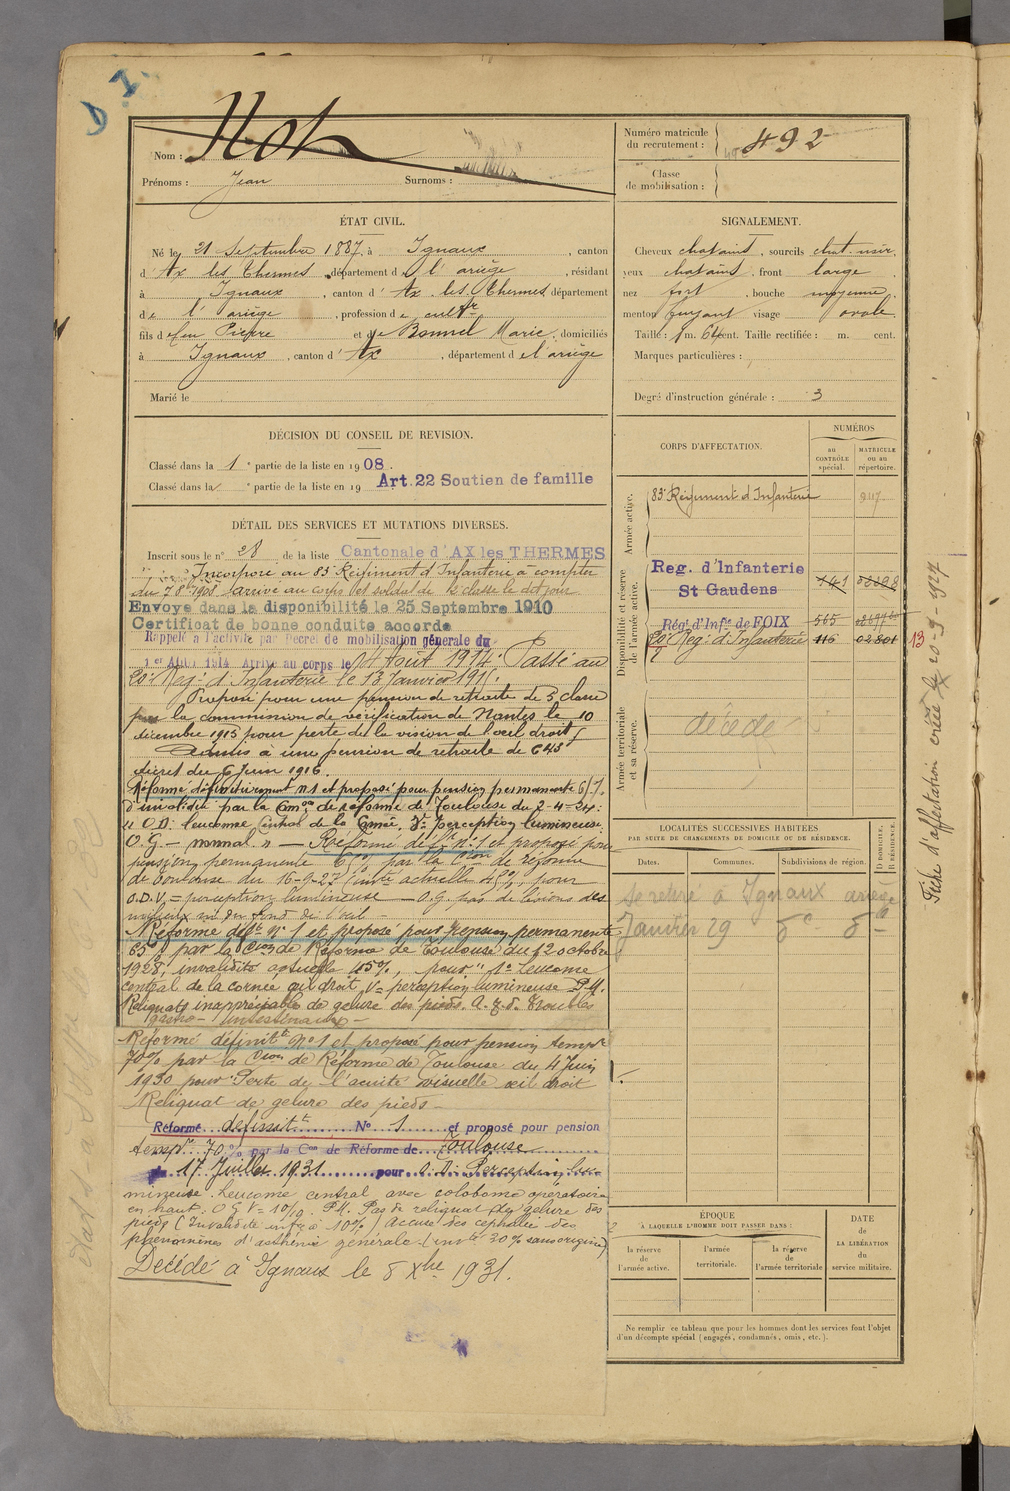 Nom : Not
Prénoms : Jean Surnoms :
Numéro matricule du recrutement : 492
Classe de mobilisation :
ÉTAT CIVIL.
Né le 21 Septembre 1887, à Ignaux, canton
d'Ax les Thermes, département de l'ariège, résidant
à Ignaux, canton d'Ax les Thermes, département
de l'ariège, profession de cultr
fils de feu Pierre et de Bonnel Marie, domiciliés
à Ignaux, canton d'Ax, département de l'ariège
Marié le
SIGNALEMENT.
Cheveux chatains, sourcils chat. noir.
yeux chatains, front large
nez fort, bouche moyenne
menton fuyant visage ovale.
Taille : 1 m. 64 cent. Taille rectifiée : m. cent.
Marques particulières :
Degré d'instruction générale : 3
DÉCISION DU CONSEIL DE REVISION.
Classé dans la 1e partie de la liste en 1908.
Classé dans la e partie de la liste en 19 Art. 22 Soutien de famille
DÉTAIL DES SERVICES ET MUTATIONS DIVERSES.
Inscrit sous le n° 28 de la liste Cantonale d'AX les THERMES
Incorporé au 83e Régiment d'Infanterie à compter
du 7 8bre 1908 arrivé au corps et soldat de 2e classe le dit jour
Envoyé dans la disponibilité le 25 Septembre 1910
Certificat de bonne conduite accordé
Rappelé à l'activité par Décret de mobilisation générale du
1er Août 1914 Arrivé au corps le 4 Août 1914. Passé au
20e Reg: d'Infanterie le 13 Janvier 1915.
Proposé pour une pension de retraite de 5e classe
par la commission de vérification de Nantes le 10
décembre 1915 pour perte de la vision de l'oeil droit
Admis à une pension de retraite de 645f
décret du 6 Juin 1916.
Réformé définitivement n°1 et proposé pour pension permanente 65%
d'invalidité par la Comon de réforme de Toulouse du 2-4-24:
"O.D: leucome central de la Cornée, V= perception lumineuse.
O.G. – normal." — Réformé deft n°1 et proposé pour
pension permanente 65%, par la Cion de réforme
de Toulouse du 16-9-27 (invté actuelle 45%, pour
O.D.V.= perception lumineuse — O.g. pas de lésions des
milieux ni du fond de l'oeil -
Réformé déft n° 1 et proposé pour pension permanente
65% par la Cion de Réforme de Toulouse du 12 octobre
1928, invalidité actuelle 45%, pour "1° Leucome
central de la cornée œil droit V= perception lumineuse P.M.
Reliquats inappréciable de gelure des pieds. A.q.d. Troubles
gastro-intestinaux -
Réformé définitt n°1 et proposé pour pension tempre
70% par la Cion de Réforme de Toulouse du 4 Juin
1930 pour Perte de l'acuité visuelle œil droit
Reliquat de gelure des pieds -
Réformé définitt N° 1 et proposé pour pension
tempre 70% par la Con de Réforme de Toulouse
du 17 Juillet 1931 pour O.D: Perception lu-
mineuse. Leucome central avec colobome opératoire
en haut: O G V = 10/10. P.M. Pas de reliquat de gelure des
pieds (Invalidité infre à 10%) Accuse des céphalée des
phénomènes d'asthénie générale. (invté 30% sans origine)
Décédé à Ignaux le 8 Xbre 1931.
CORPS D'AFFECTATION.
NUMÉROS
au CONTRÔLE spécial.
MATRICULE ou au répertoire.
Armée active.
83e Régiment d'Infanterie 947
Disponibilité et réserve de l'armée active.
Reg. d'Infanterie
St Gaudens 141
Régt d'Infie de FOIX 565
20e Reg: d'Infanterie 116 02801
13
Armée territoriale et sa réserve.
décédé
LOCALITÉS SUCCESSIVES HABITÉES
PAR SUITE DE CHANGEMENTS DE DOMICILE OU DE RÉSIDENCE.
Dates. Communes. Subdivisions de région. D DOMICILE. R RÉSIDENCE.
se retiré à Ignaux ariège
Janvier 29 do do
ÉPOQUE
À LAQUELLE L'HOMME DOIT PASSER DANS :
la réserve de l'armée active.
l'armée territoriale.
la réserve de l'armée territoriale
DATE de LA LIBÉRATION du service militaire.
Ne remplir ce tableau que pour les hommes dont les services font l'objet
d'un décompte spécial (engagés, condamnés, omis, etc.).
Fiche d'affectation créée le 20-9-1927